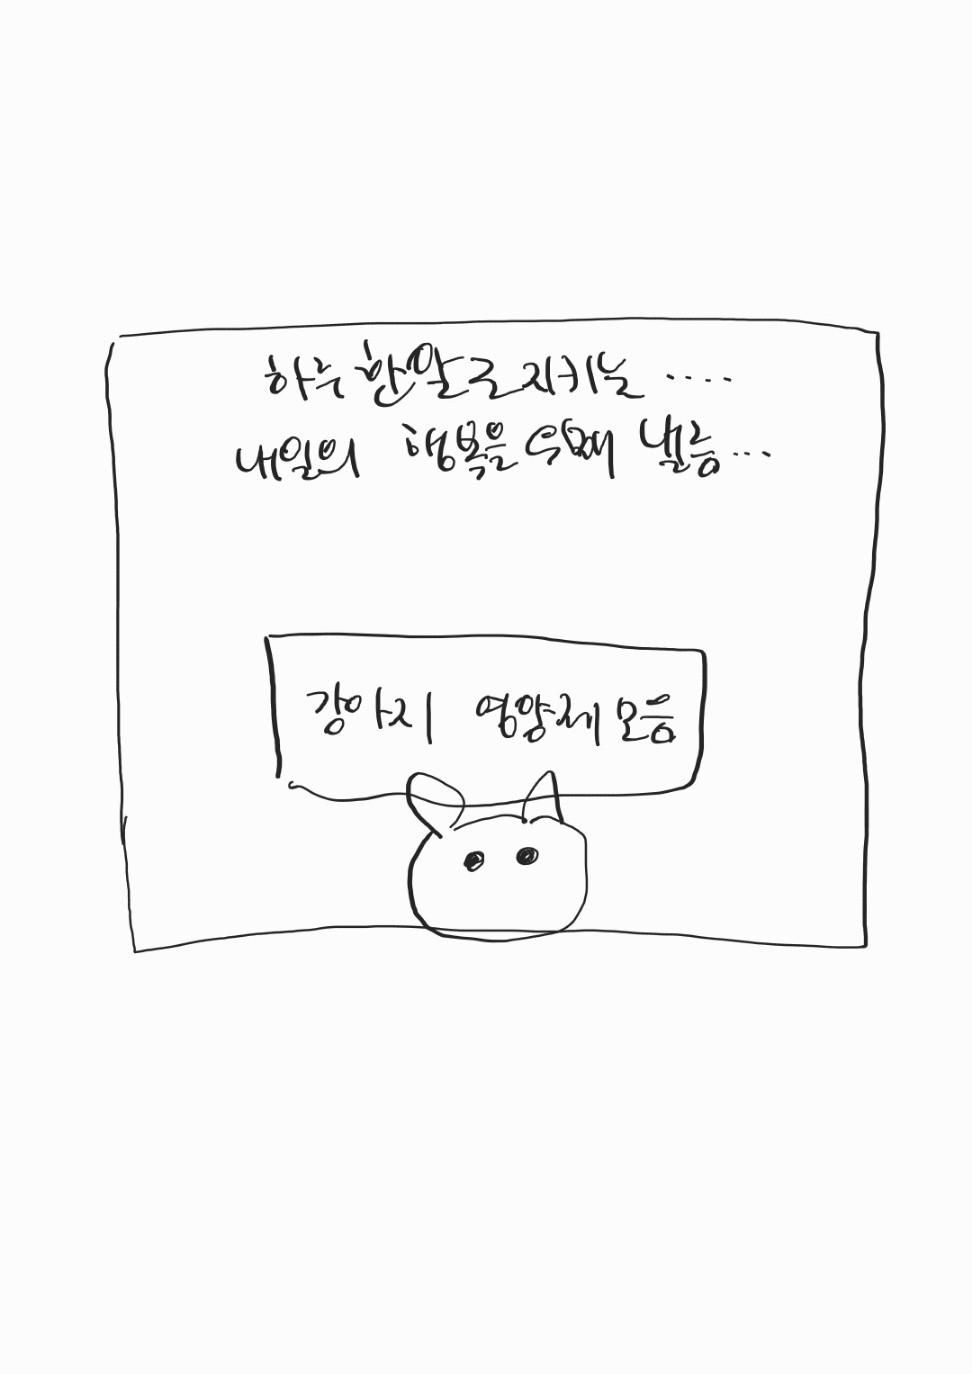 하루 한알로 지키는 ....
내일의 행복을 위해
강아지 영양제 모음